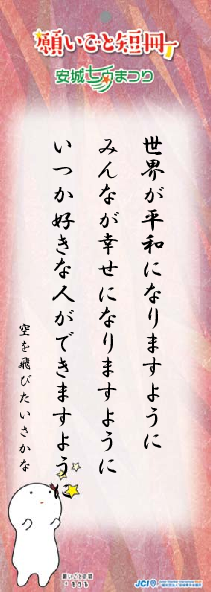 願いごと短冊
安城七夕まつり
世界が平和になりますように
みんなが幸せになりますように
いつか好きな人ができますように
空を飛びたいさかな
JCI